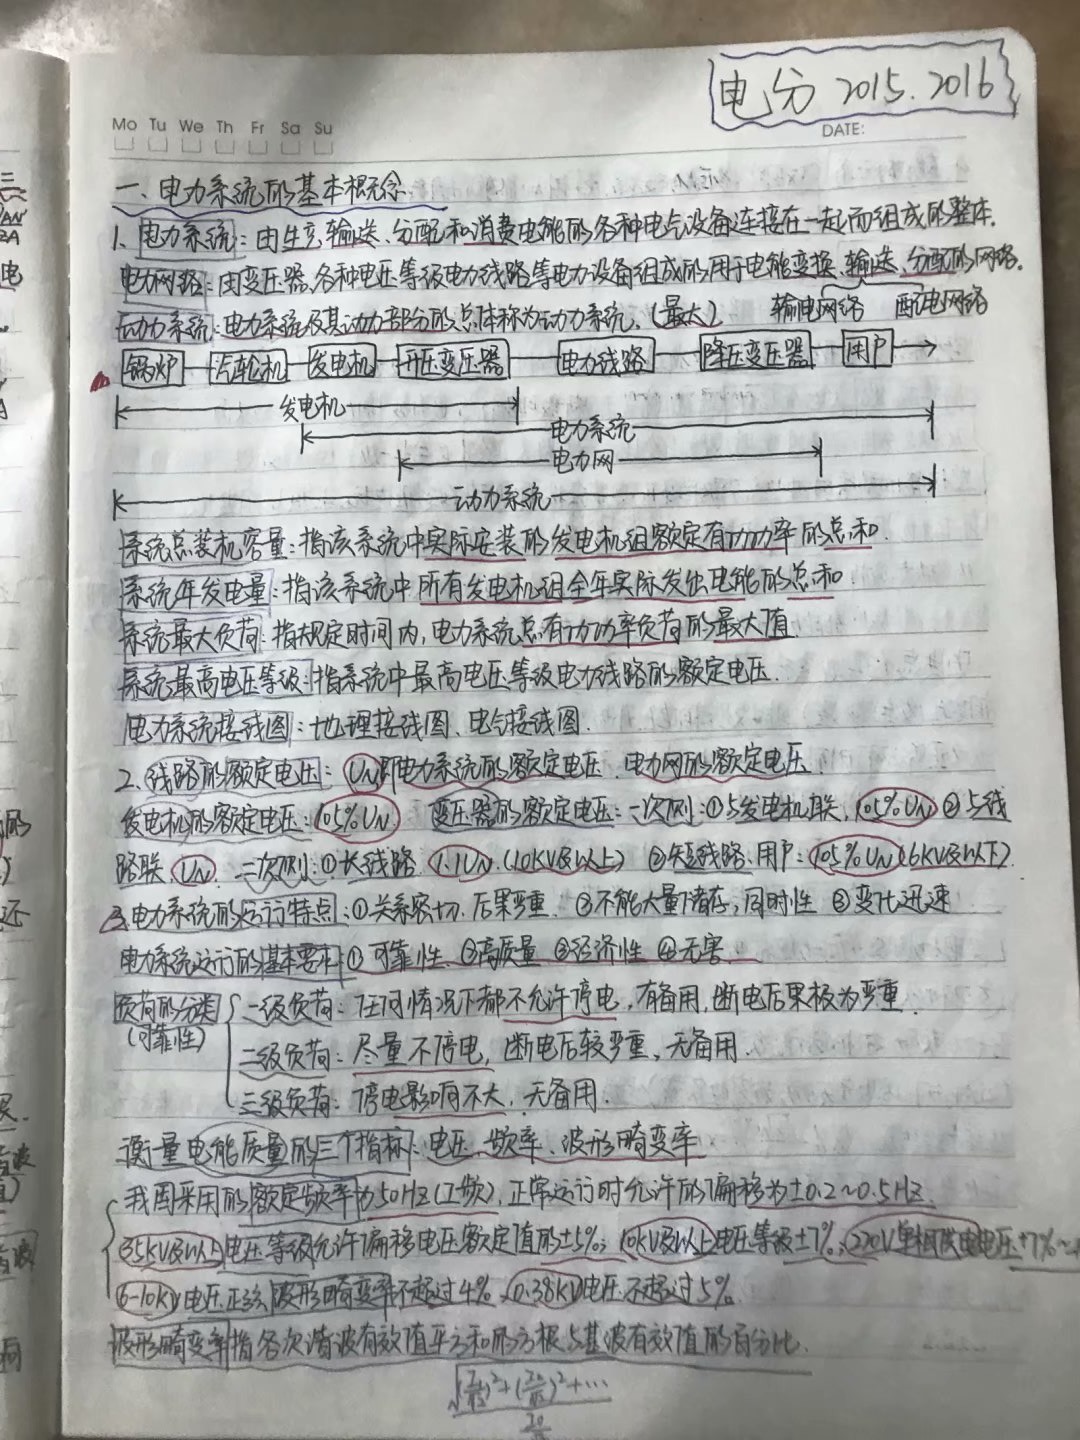 电分 2015.2016
Mo Tu We Th Fr Sa Su
DATE:
一、电力系统的基本概念
1、电力系统:由生产、输送、分配和消费电能的各种电气设备连接在一起而组成的整体.
电力网络:由变压器、各种电压等级电力线路等电力设备组成的用于电能变换、输送、分配的网络.
输电网络 配电网络
动力系统:电力系统及其动力部分的总体称为动力系统.(最大)
锅炉 汽轮机 发电机 升压变压器 电力线路 降压变压器 用户
发电机
电力系统
电力网
动力系统
系统总装机容量:指该系统中实际安装的发电机组额定有功功率的总和.
系统年发电量:指该系统中所有发电机组全年实际发出电能的总和
系统最大负荷:指规定时间内,电力系统总有功功率负荷的最大值.
系统最高电压等级:指系统中最高电压等级电力线路的额定电压.
电力系统接线图:地理接线图、电气接线图.
2、线路的额定电压:UN即电力系统的额定电压、电力网的额定电压.
发电机的额定电压:105%UN 变压器的额定电压:一次侧:①与发电机联,105%UN ②与线
路联,UN. 二次侧:①长线路 1.1UN(10KV及以上) ②短线路、用户:105%UN(6KV及以下)
3、电力系统的运行特点:①关系密切,后果严重. ②不能大量储存,同时性 ③变化迅速
电力系统运行的基本要求:①可靠性 ②高质量 ③经济性 ④无害
负荷的分类 一级负荷:任何情况下都不允许停电,有备用,断电后果极为严重.
(可靠性)
二级负荷:尽量不停电,断电后较严重,无备用.
三级负荷:停电影响不大,无备用.
衡量电能质量的三个指标:电压、频率、波形畸变率
我国采用的额定频率为50HZ(工频),正常运行时允许的偏移为±0.2~0.5HZ.
35KV及以上电压等级允许偏移电压额定值的±5%;10KV及以上电压等级±7%;220V单相供电电压+7%~
6-10KV电压正弦波形畸变率不超过4%、0.38KV电压不超过5%.
波形畸变率指各次谐波有效值平方和的方根与基波有效值的百分比.